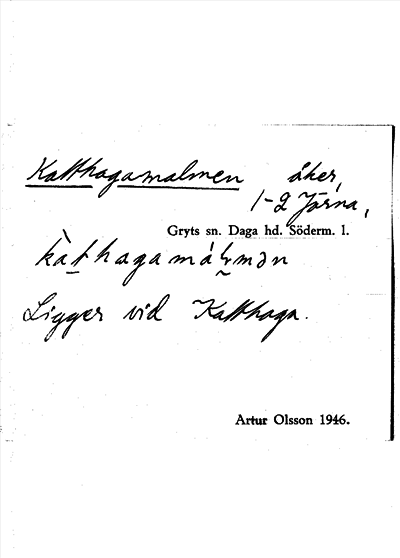 Katthagamalmen åker,
1-2 Järna,
Gryts sn. Daga hd. Söderm. l.
kàt̲hagamáɬ̰mən
Ligger vid Katthaga.
Artur Olsson 1946.